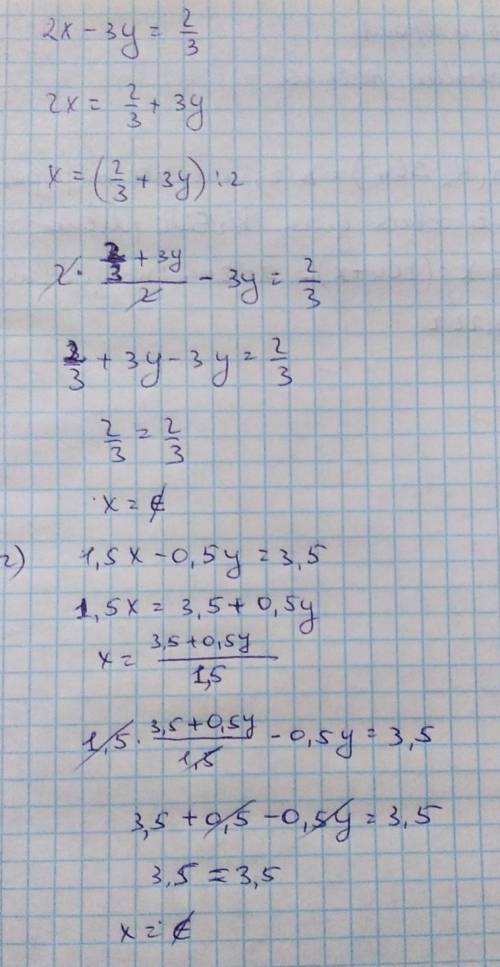 2x - 3y = 2/3
2x = 2/3 + 3y
x = (2/3 + 3y) : 2
2 · (2/3 + 3y)/2 - 3y = 2/3
2/3 + 3y - 3y = 2/3
2/3 = 2/3
x = ¢
2) 1,5x - 0,5y = 3,5
1,5x = 3,5 + 0,5y
x = (3,5 + 0,5y)/1,5
1,5 · (3,5 + 0,5y)/1,5 - 0,5y = 3,5
3,5 + 0,5 - 0,5y = 3,5
3,5 = 3,5
x = ¢